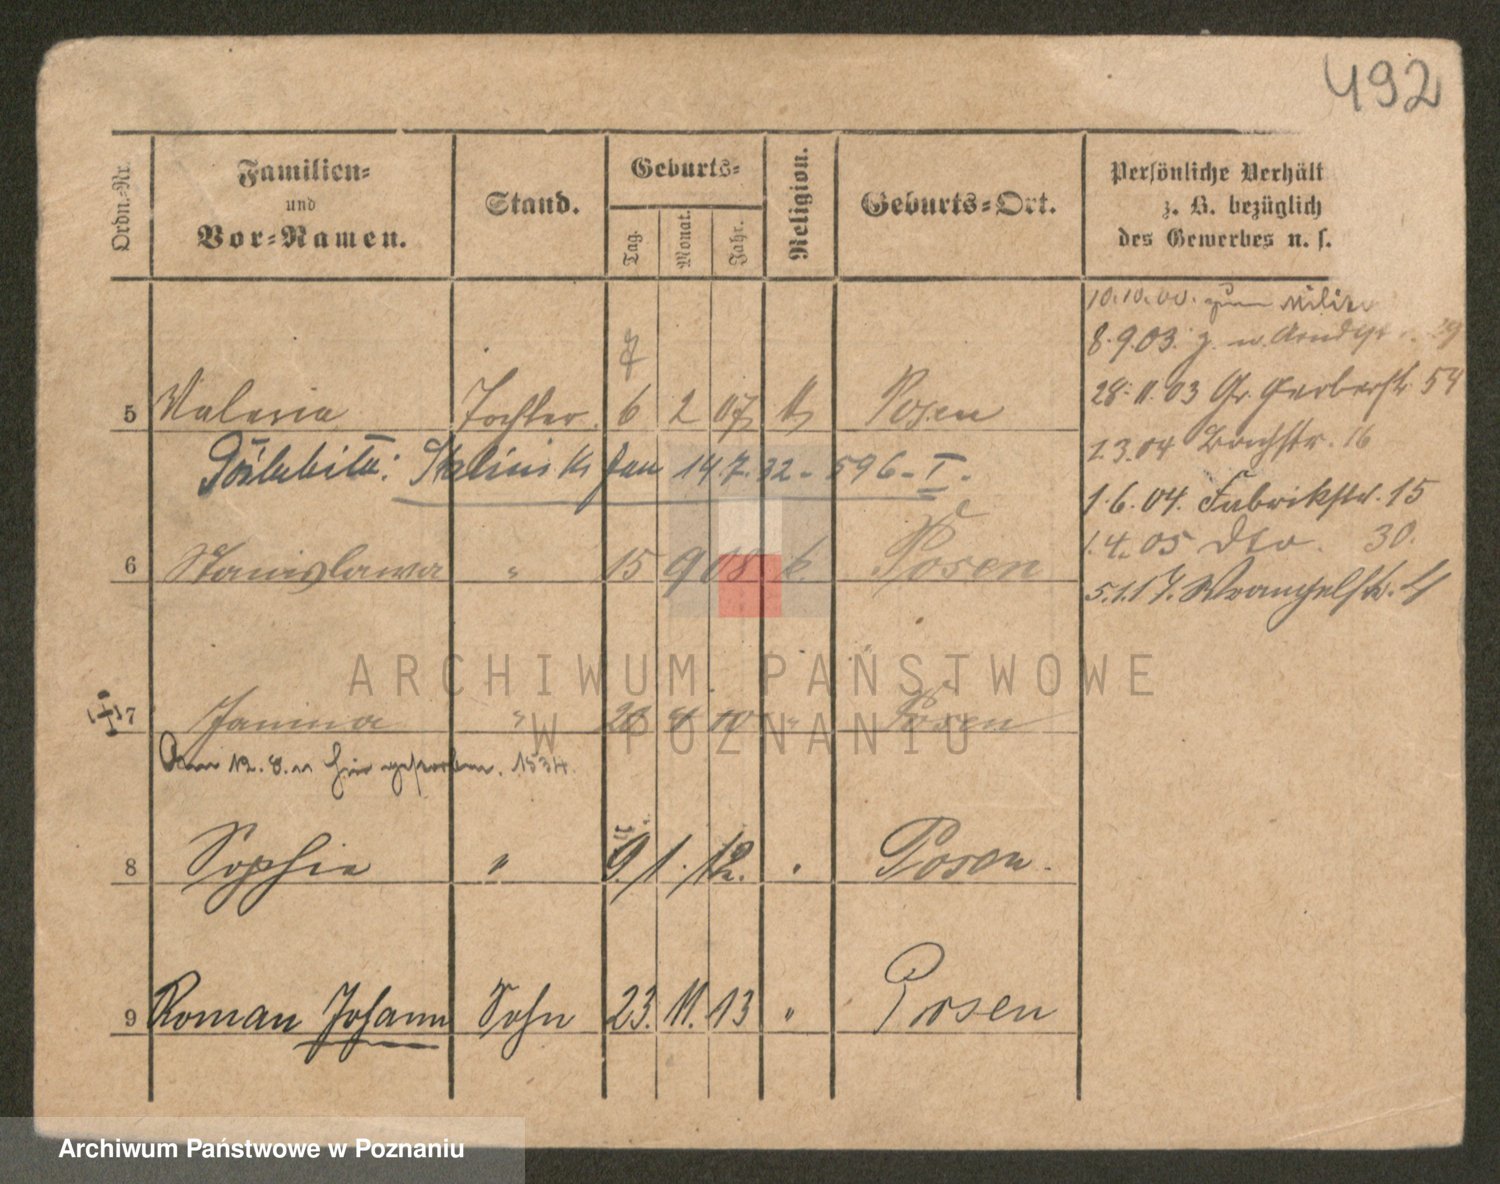 492
Ordn.-Nr.
Familien-
und
Vor-Namen.
Stand.
Geburts-
Tag.
Monat.
Jahr.
Religion.
Geburts-Ort.
Persönliche Verhält
z. B. bezüglich
des Gewerbes u. s.
10.10.00. zum
8.9.03. z.
28.11.03 Gr. Gerberstr 54
2.3.04 Bachstr. 16
1.6.04. Fabrikstr. 15
1.4.05 dto. 30.
5.1.17. Wrangelstr. 4
5 Valeria Tochter 6 2 07 Posen
14.7.32 - 596 - I.
6 Stanislawa " 15 9 08 k. Posen
7 Janina " 10 " Posen
Am 12.8.11 hier gestorben. 1534.
8 Sophie " 9. 1. 12. " Posen.
9 Roman Johann Sohn 23. 11. 13 " Posen
ARCHIWUM PAŃSTWOWE
W POZNANIU
Archiwum Państwowe w Poznaniu